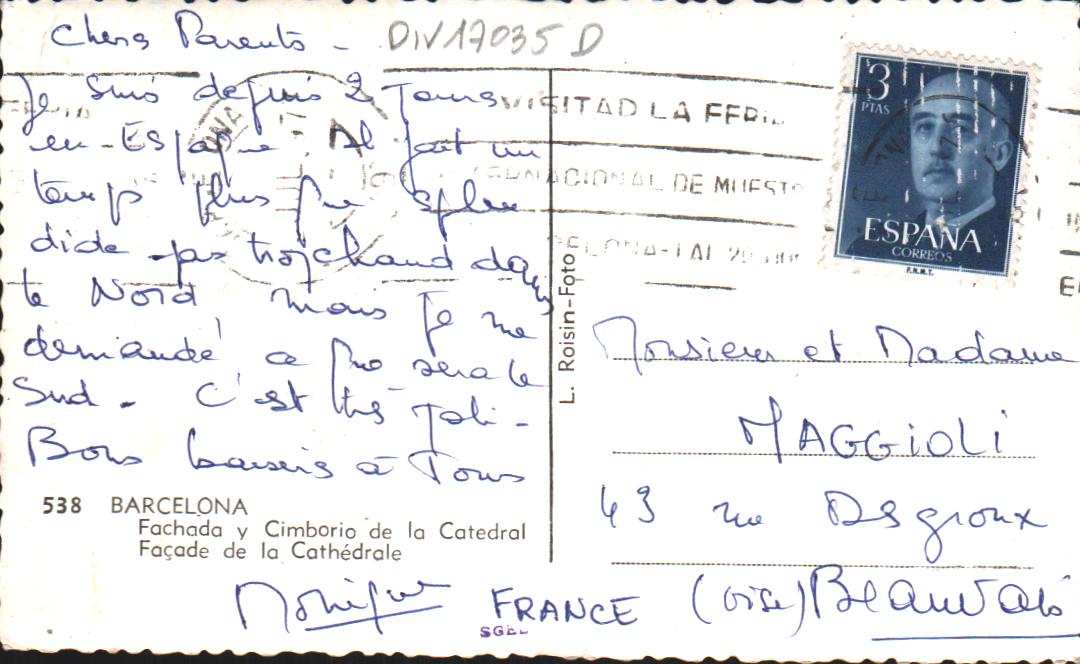 Chers Parents -
DIV17035 D
Je suis depuis 2 jours
en Espagne. Il fait un
temps plus que splen
dide - pas trop chaud dans
le Nord, mais je me
demande ce que sera le
Sud - C'est très joli -
Bons baisers à Tous
Monique
538 BARCELONA
Fachada y Cimborio de la Catedral
Façade de la Cathédrale
L. Roisin-Foto
VISITAD LA FERIA
INTERNACIONAL DE MUESTRAS
BARCELONA-1 AL 20 JUN
3
PTAS
ESPAÑA
CORREOS
F.N.M.T.
Monsieur et Madame
MAGGIOLI
43 rue Desgroux
(Oise) Beauvais
FRANCE